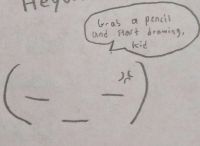 Grab a pencil
and start drawing,
kid